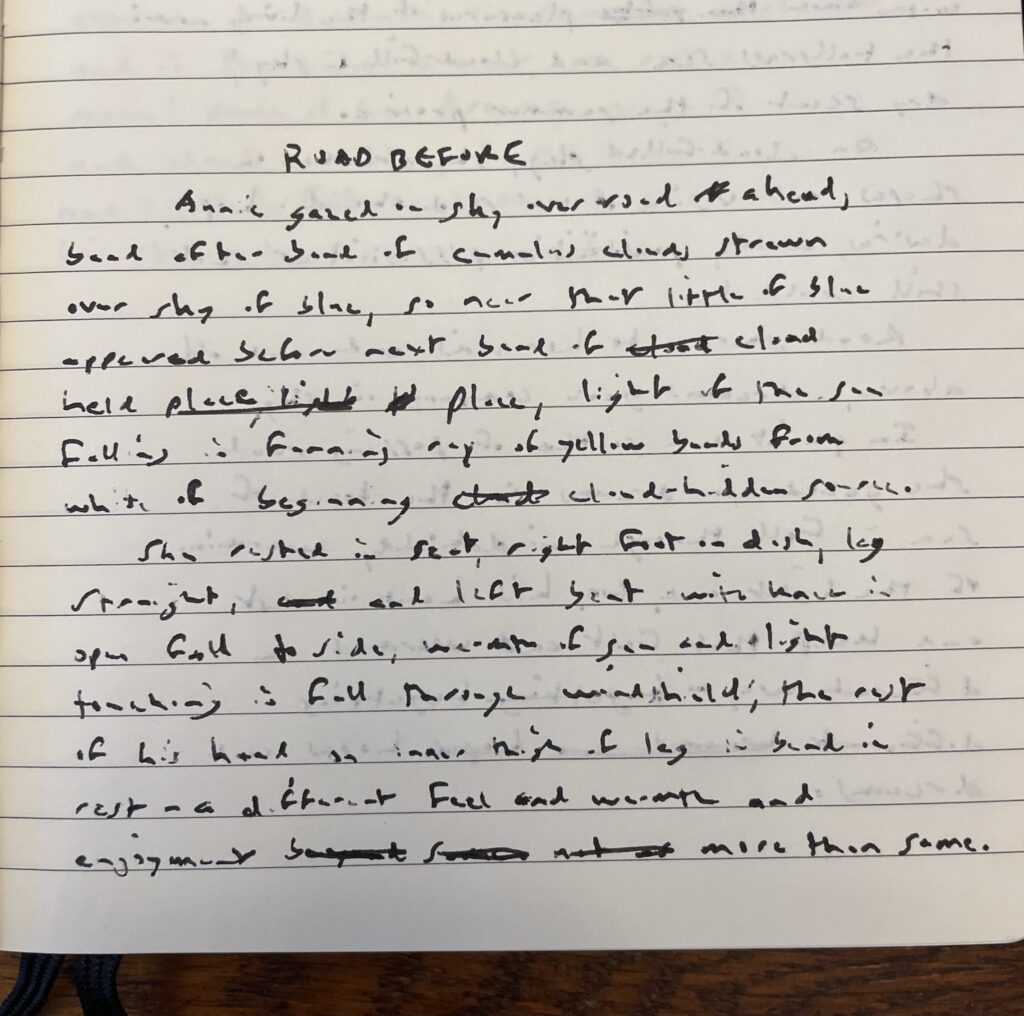 ROAD BEFORE
Annie gazed on sky over road ahead,
band after band of cumulus clouds strewn
over sky of blue, so near that little of blue
appeared before next band of cloud cloud
held place light place, light of the sun
falling in fanning ray of yellow bands from
white of beginning cloud-hidden source.
She rested in seat, right foot on dash, leg
straight, and and left bent with knee in
open fall to side, warmth of sun and light
touching in fall through windshield, the rest
of his hand on inner thigh of leg in bend in
rest a different feel and warmth and
enjoyment more than same.